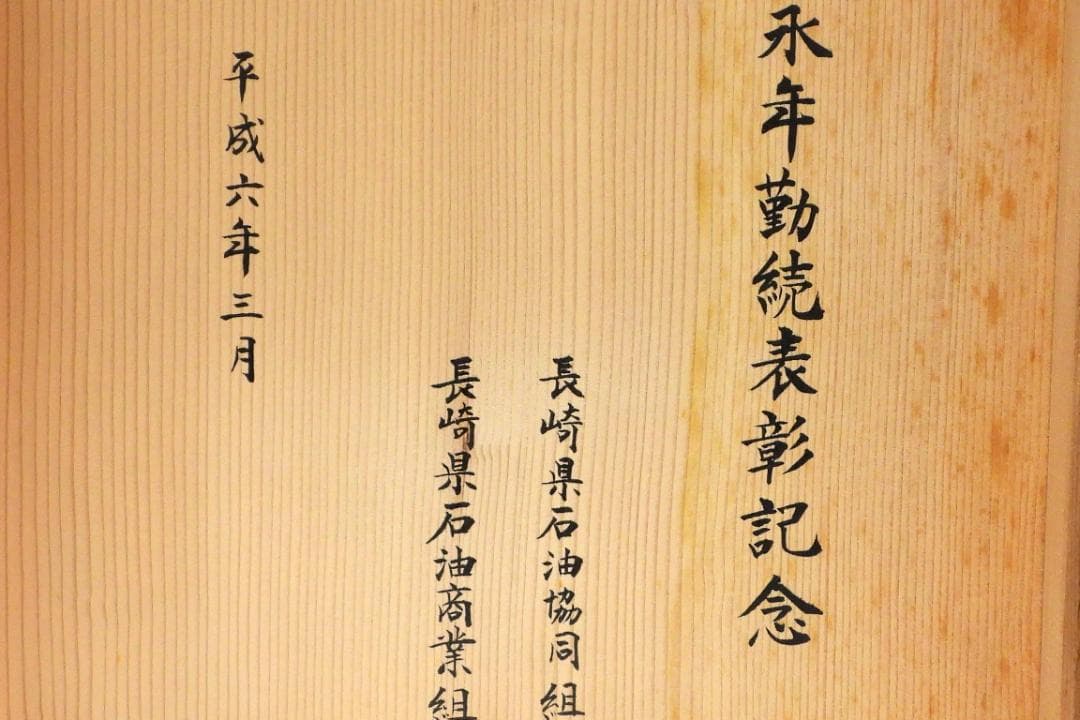 永年勤続表彰記念
長崎県石油協同組
長崎県石油商業組
平成六年三月